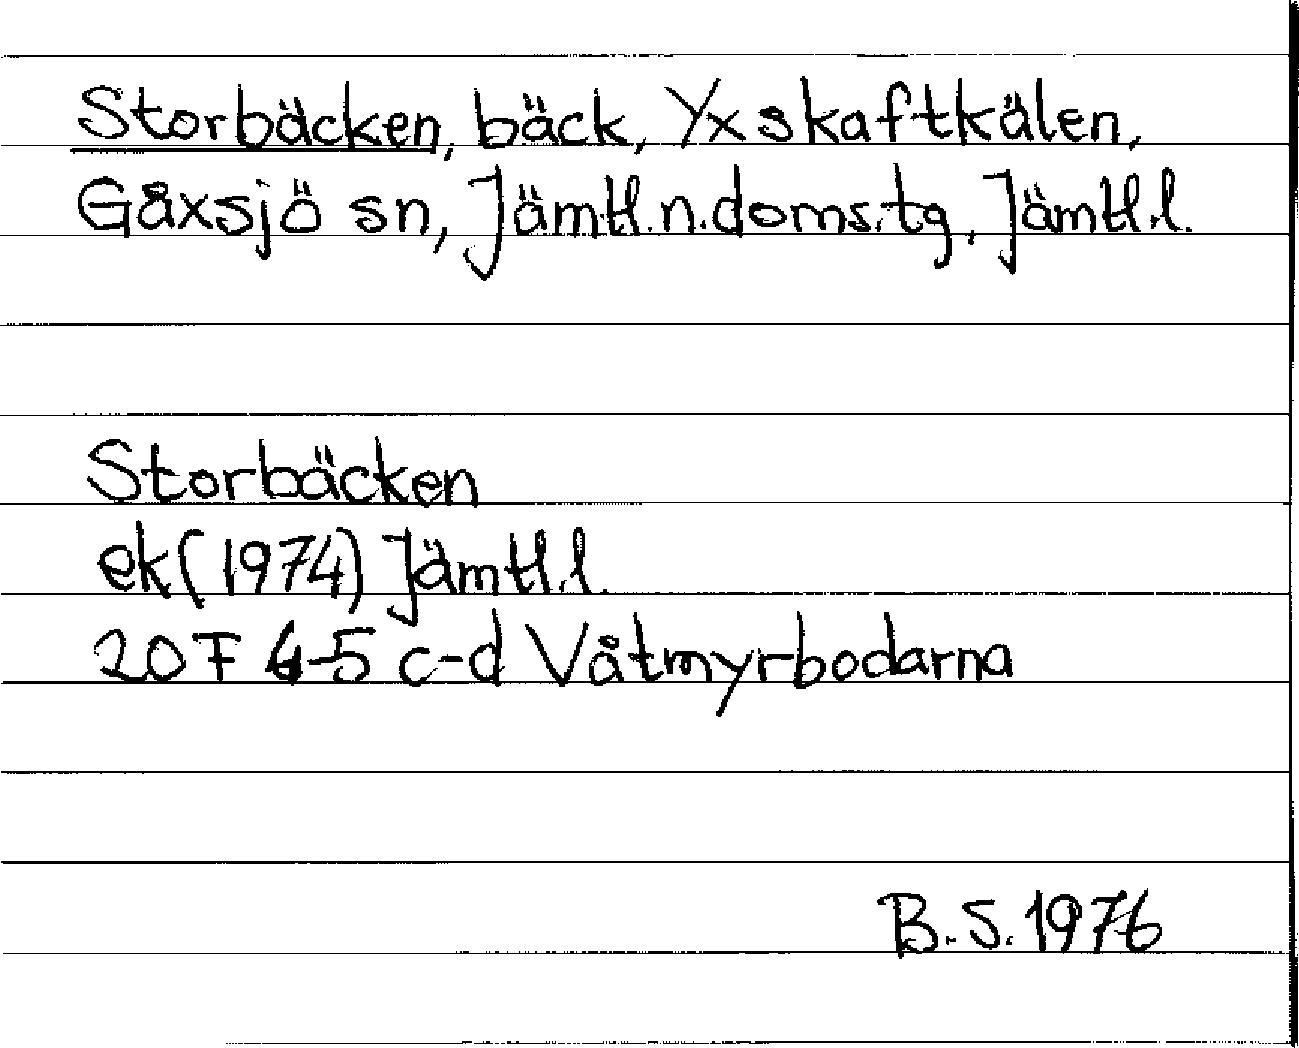 Storbäcken, bäck, Yxskaftkälen,
Gåxsjö sn, Jämtl.n.doms.tg, Jämtl.l.
Storbäcken
ek (1974) Jämtl.l.
20F 4-5 c-d Våtmyrbodarna
B.S. 1976